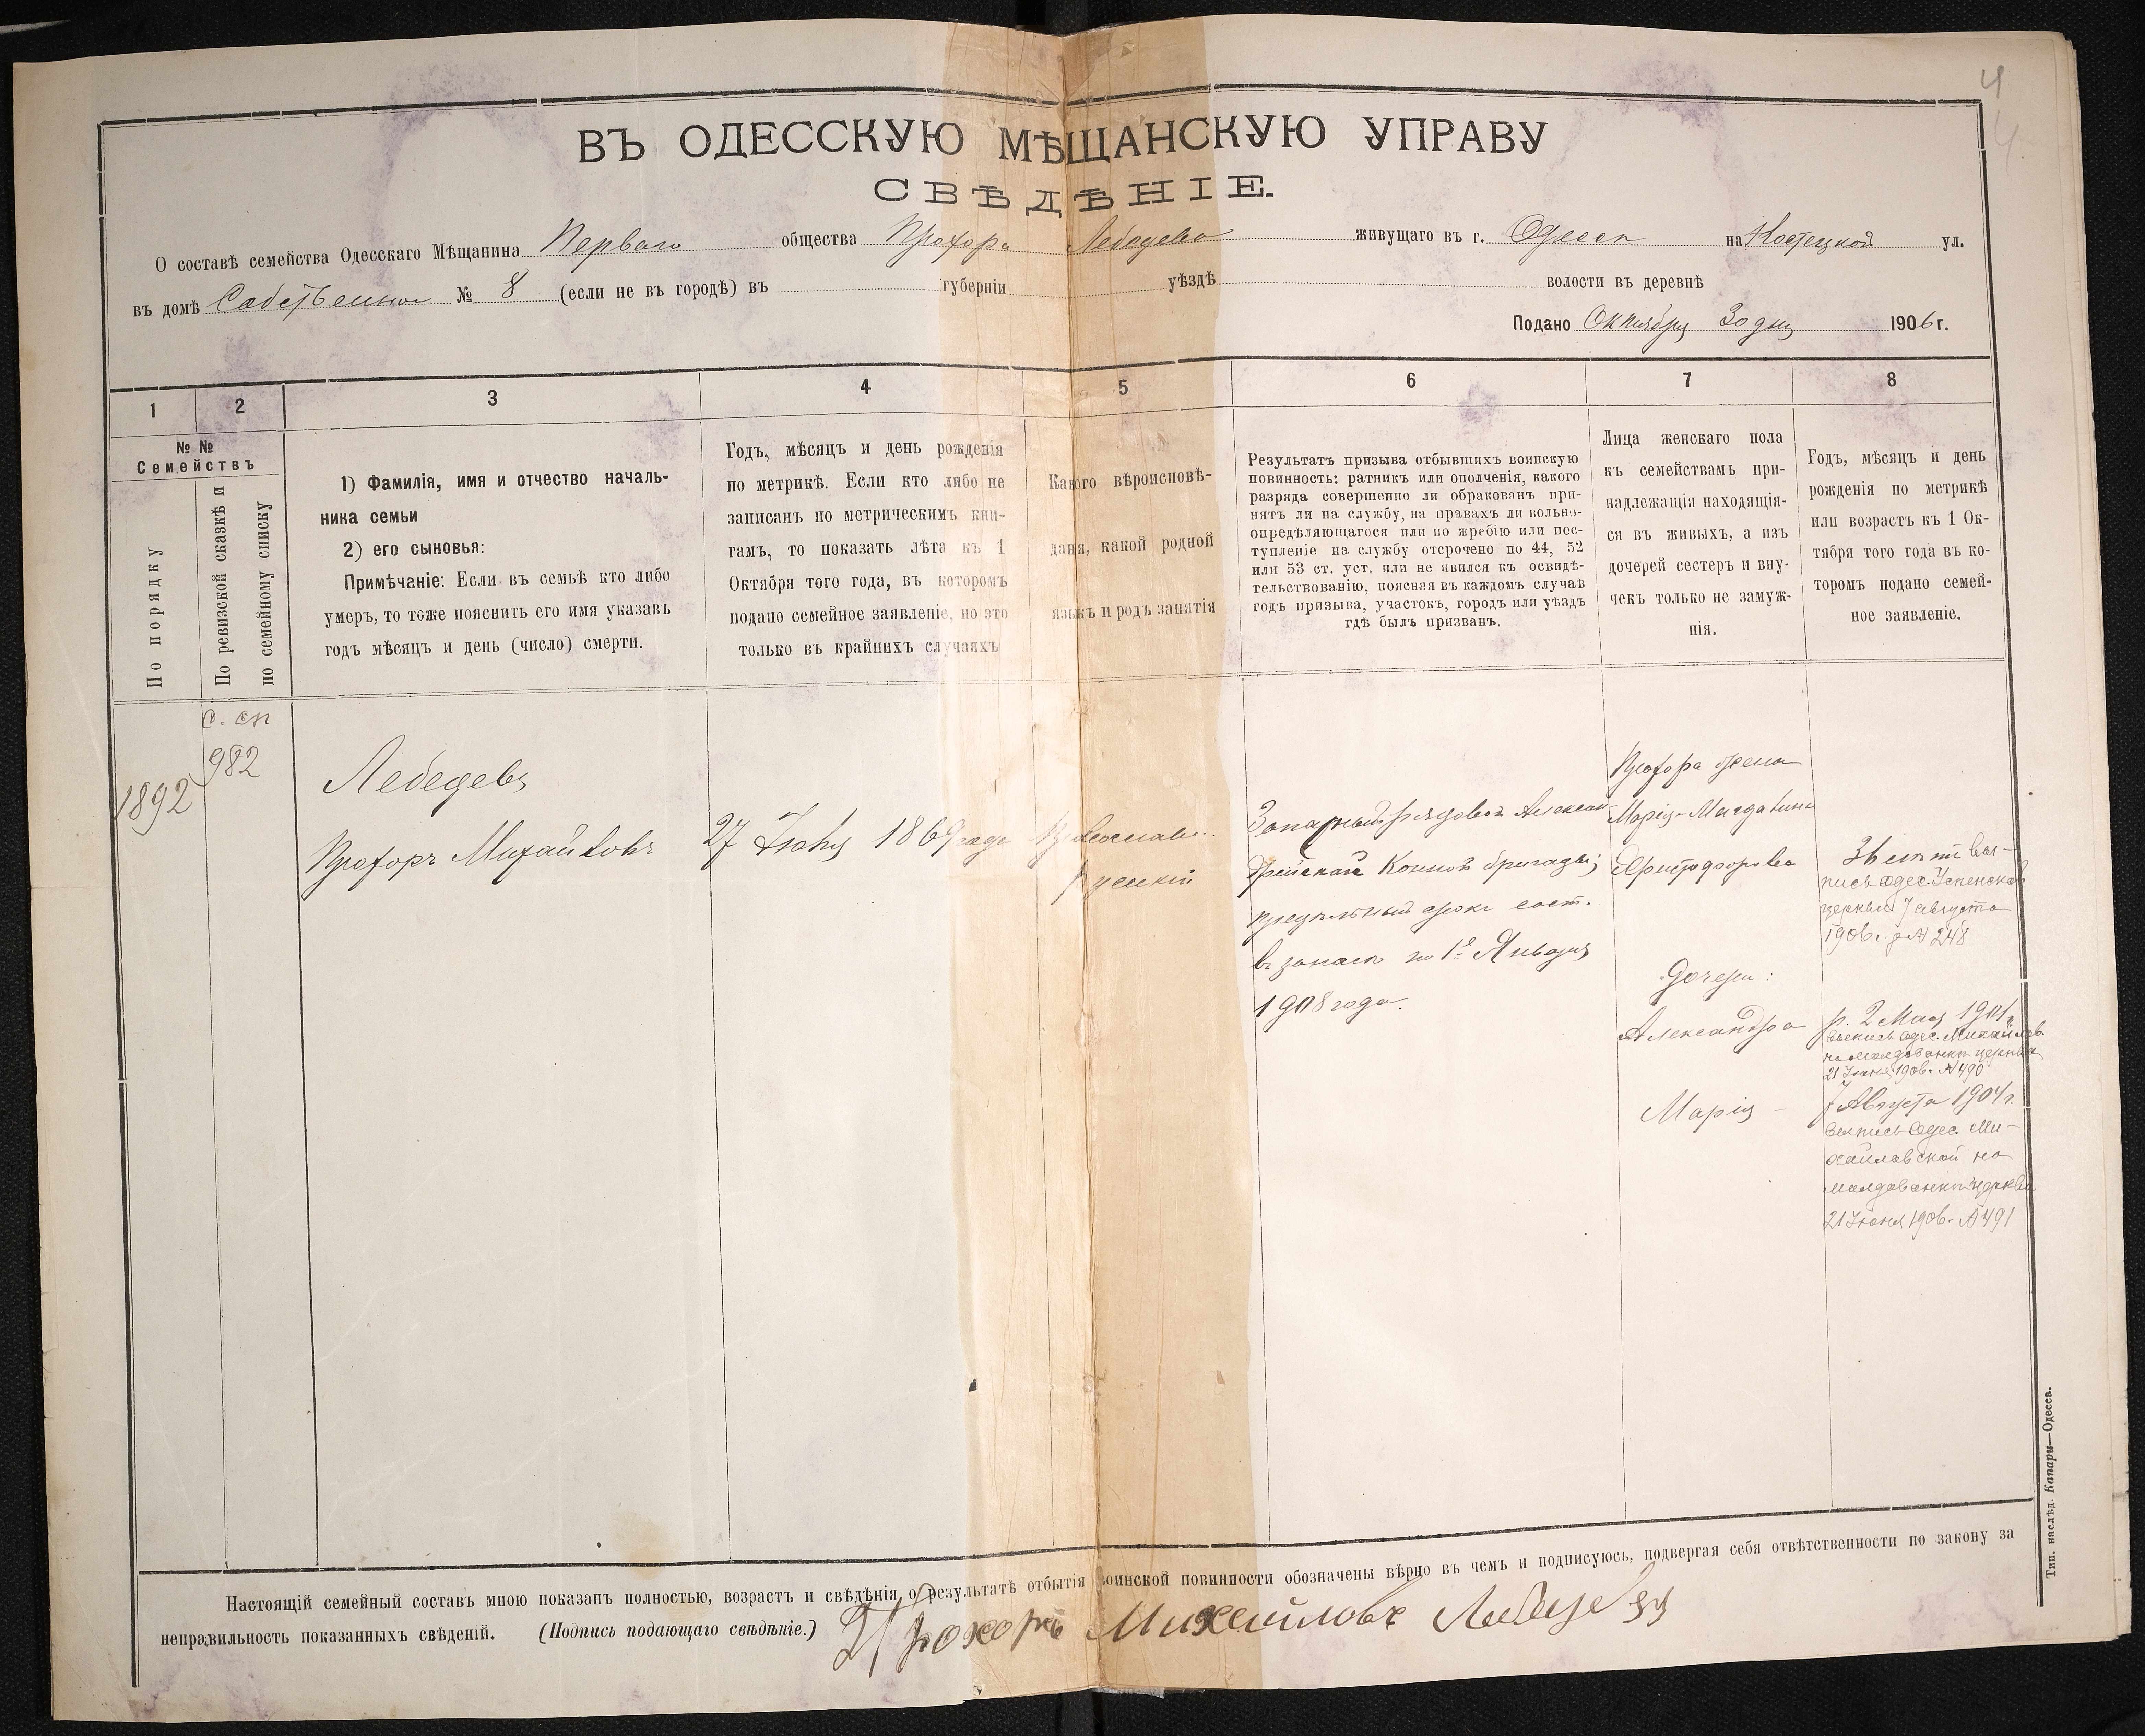 4
4
ВЪ ОДЕССКУЮ МѢЩАНСКУЮ УПРАВУ
СВѢДѢНІЕ.
О составѣ семейства Одесскаго Мѣщанина Перваго общества Прохора Лебедева живущаго въ г. Одессѣ на Костецкой ул.
въ домѣ № 8 (если не въ городѣ) въ губерніи уѣздѣ волости въ деревнѣ
Подано Октября 30 дня 1906 г.
1 2 3 4 5 6 7 8
№ № Семействъ
По порядку
По ревизской сказкѣ и по семейному списку
1) Фамилія, имя и отчество началь-
ника семьи
2) его сыновья:
Примѣчаніе: Если въ семьѣ кто либо
умеръ, то тоже пояснить его имя указавъ
годъ мѣсяцъ и день (число) смерти.
Годъ, мѣсяцъ и день рожденія
по метрикѣ. Если кто либо не
записанъ по метрическимъ кни-
гамъ, то показать лѣта къ 1
Октября того года, въ которомъ
подано семейное заявленіе, но это
только въ крайнихъ случаяхъ
Какого вѣроисповѣ-
данія, какой родной
языкъ и родъ занятія
Результатъ призыва отбывшихъ воинскую
повинность: ратникъ или ополченія, какого
разряда совершенно ли обракованъ при-
нятъ ли на службу, на правахъ ли вольно-
опредѣляющагося или по жребію или пос-
тупленіе на службу отсрочено по 44, 52
или 53 ст. уст. или не явился къ освидѣ-
тельствованію, поясняя въ каждомъ случаѣ
годъ призыва, участокъ, городъ или уѣздъ
гдѣ былъ призванъ.
Лица женскаго пола
къ семействамъ при-
надлежащія находящія-
ся въ живыхъ, а изъ
дочерей сестеръ и вну-
чекъ только не замуж-
нія.
Годъ, мѣсяцъ и день
рожденія по метрикѣ
или возрастъ къ 1 Ок-
тября того года въ ко-
торомъ подано семей-
ное заявленіе.
с. сп
982
1892
Лебедевъ
Прохоръ Михайловъ
27 Іюля 1869 года
Православн.
русскій
Запасный рядовой Алексан-
дрійской Конной бригады;
предѣльный срокъ сост.
въ запасѣ по 1е Января
1908 года.
Прохора жена
Марія-Магдалина
Христофорова
Дочери:
Александра
Марія –
36 лѣтъ вы-
пись Одес. Успенской
церкви 7 августа
1906 г. за № 248
р. 2 Мая 1901 г.
выпись Одес. Михайлов.
на Молдаванкѣ церкви
21 Іюня 1906 г. № 490
7 Августа 1904 г.
выпись Одес. Ми-
хайловской на
Молдаванкѣ церкви
21 Іюня 1906 г. № 491
Настоящій семейный составъ мною показанъ полностью, возрастъ и свѣдѣнія о результатѣ отбытія воинской повинности обозначены вѣрно въ чемъ и подписуюсь, подвергая себя отвѣтственности по закону за
неправильность показанныхъ свѣденій. (Подпись подающаго свѣдѣніе.) Прохоръ Михайловъ Лебедевъ
Тип. наслѣд. Капари—Одесса.